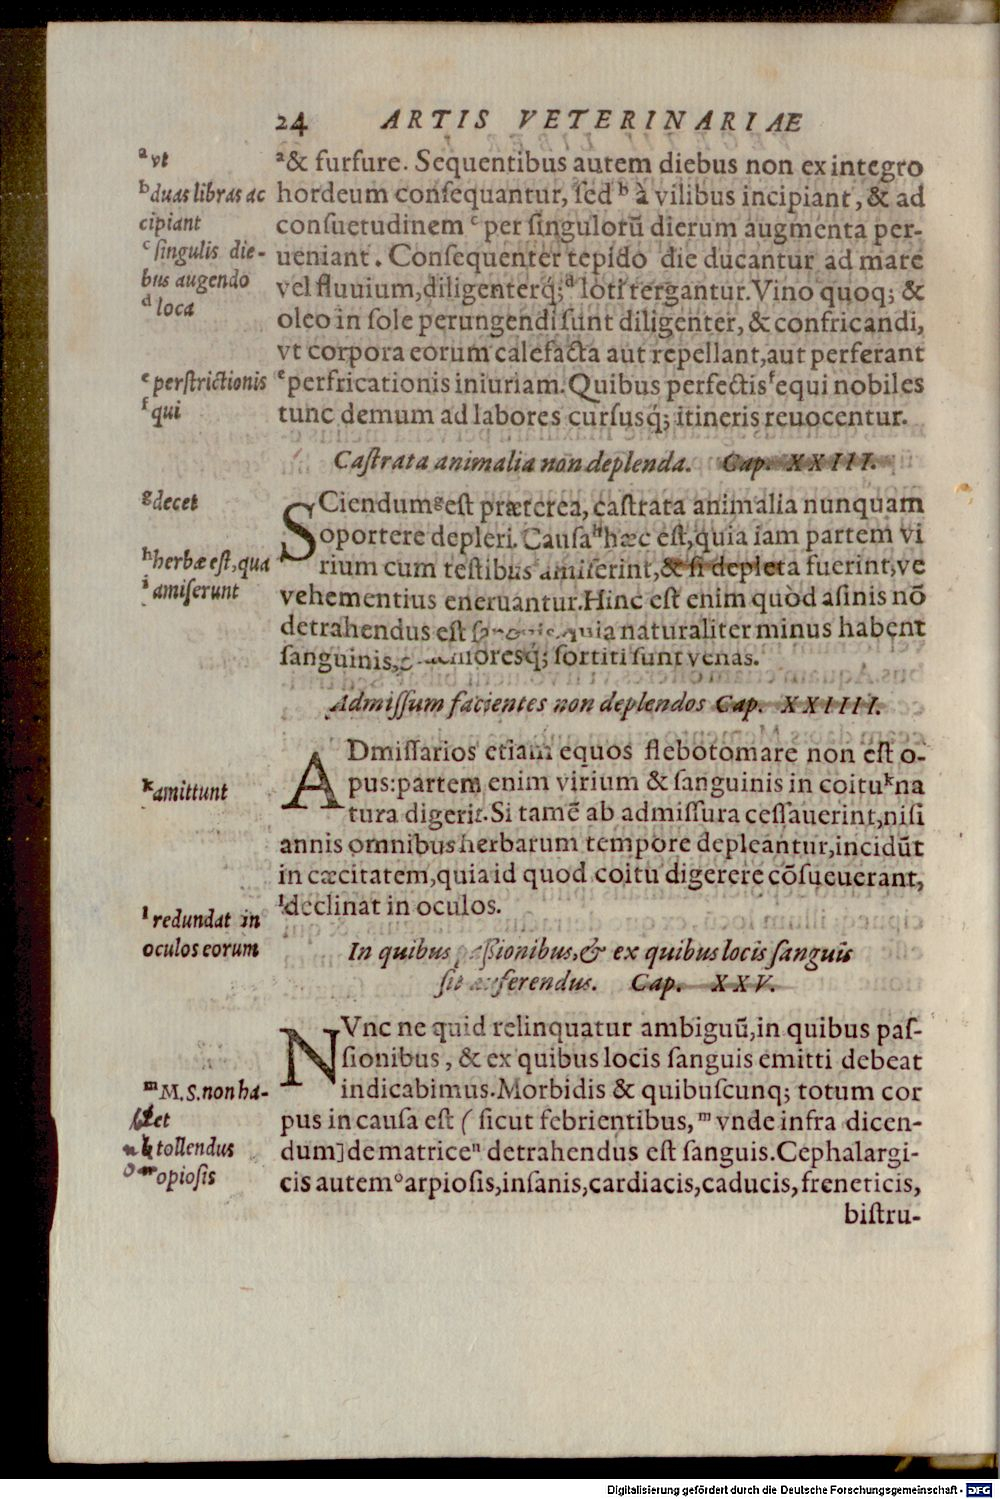 24 ARTIS VETERINARIAE
ᵃ vt
ᵇ duas libras ac
cipiant
ᶜ singulis die-
bus augendo
ᵈ loca
ᵉ perstrictionis
ᶠ qui
ᵃ& furfure. Sequentibus autem diebus non ex integro
hordeum consequantur, sed ᵇ à vilibus incipiant, & ad
consuetudinem ᶜ per singulorū dierum augmenta per-
ueniant. Consequenter tepido die ducantur ad mare
vel fluuium, diligenterq́; ᵈ loti tergantur. Vino quoq; &
oleo in sole perungendi sunt diligenter, & confricandi,
vt corpora eorum calefacta aut repellant, aut perferant
ᵉ perfricationis iniuriam. Quibus perfectis ᶠ equi nobiles
tunc demum ad labores cursusq́; itineris reuocentur.
Castrata animalia non deplenda. Cap. XXIII.
ᵍ decet
ʰ herbæ est, qua
ⁱ amiserunt
SCiendum ᵍ est præterea, castrata animalia nunquam
oportere depleri. Causa ʰ hæc est, quia iam partem vi
rium cum testibus amiserint, & si depleta fuerint, ve
vehementius eneruantur. Hinc est enim quòd asinis nō
detrahendus est quia naturaliter minus habent
sanguinis, sortiti sunt venas.
Admissum facientes non deplendos Cap. XXIIII.
ᵏ amittunt
ˡ redundat in
oculos eorum
ADmissarios etiam equos flebotomare non est o-
pus: partem enim virium & sanguinis in coitu ᵏ na
tura digerit. Si tamē ab admissura cessauerint, nisi
annis omnibus herbarum tempore depleantur, incidūt
in cæcitatem, quia id quod coitu digerere cōsueuerant,
ˡ declinat in oculos.
In quibus passionibus, & ex quibus locis sanguis
sit auferendus. Cap. XXV.
ᵐ M.S. non ha-
bet
ⁿ tollendus
ᵒ opiosis
NVnc ne quid relinquatur ambiguū, in quibus pas-
sionibus, & ex quibus locis sanguis emitti debeat
indicabimus. Morbidis & quibuscunq; totum cor
pus in causa est ( sicut febrientibus, ᵐ vnde infra dicen-
dum] de matrice ⁿ detrahendus est sanguis. Cephalargi-
cis autem ᵒ arpiosis, insanis, cardiacis, caducis, freneticis,
bistru-
Digitalisierung gefördert durch die Deutsche Forschungsgemeinschaft - DFG